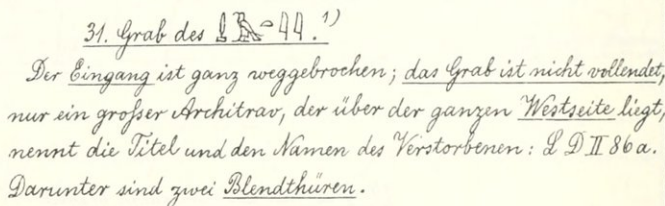 31. Grab des 𓎛𓅓𓂝𓇋𓇋.1)
Der Eingang ist ganz weggebrochen; das Grab ist nicht vollendet,
nur ein großer Architrav, der über der ganzen Westseite liegt,
nennt die Titel und den Namen des Verstorbenen: L D II 86 a.
Darunter sind zwei Blendthüren.